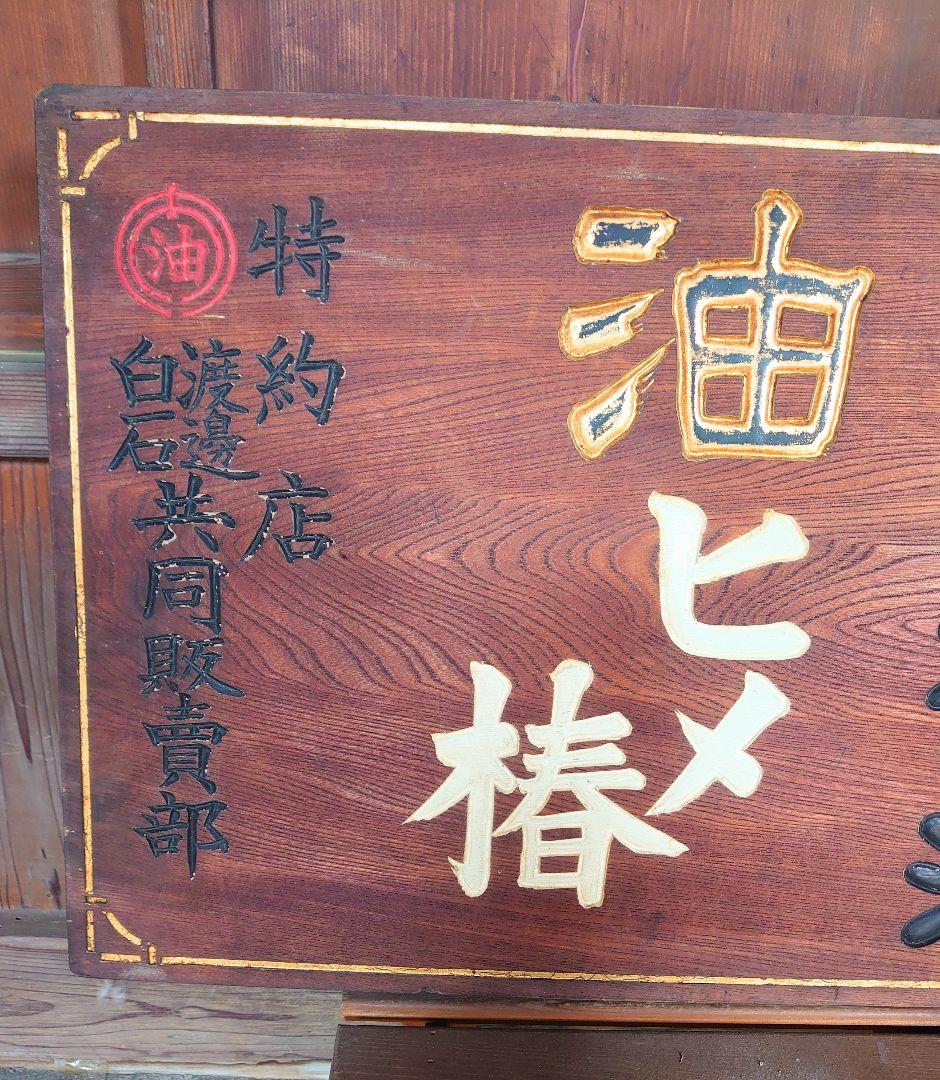 油
ヒメ
椿
特約店
油
渡邊
白石
共同販賣部